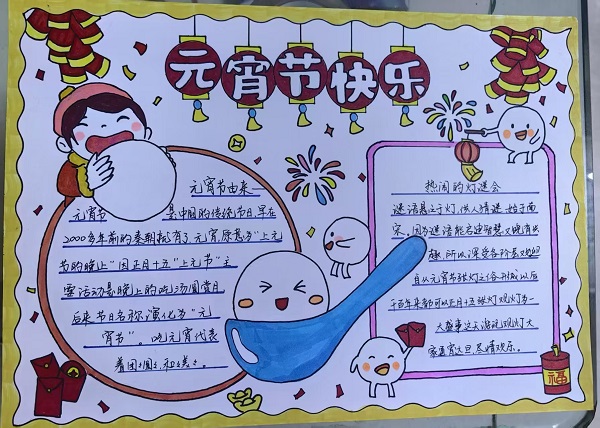 元宵节快乐
元宵节由来
元宵节 是中国的传统节日,早在
2000多年前的秦朝就有了元宵,原意为"上元
节的晚上"因正月十五"上元节"主
要活动是晚上的吃汤圆赏月
后来节日名称演化为"元
宵节"。吃元宵代表
着团圆
热闹的灯谜会
谜语悬之于灯,供人猜谜,始于南
宋。因为谜语能启迪智慧又饶有兴
趣,所以深受各阶
自从元宵张灯之俗形成以后
千百年来都可以正月十五张灯观灯为一
大盛事这天游玩观灯大
家通宵达旦,尽情欢乐。
福